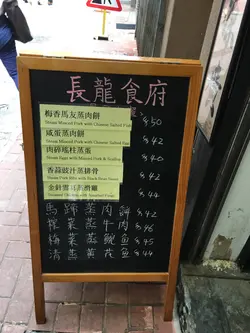 長龍食府
梅香馬友蒸肉餅 $50
Steam Minced Pork with Chinese Salted Fish
咸蛋蒸肉餅 $42
Steam Minced Pork with Chinese Salted Egg
肉碎瑤柱蒸蛋 $40
Steam Eggs with Minced Pork & Scallop
香蒜豉汁蒸排骨 $42
Steam Pork Ribs with Black Bean Sauce
金針雲耳蒸滑雞 $44
馬蹄蒸肉餅 $42
菜蒸牛肉
梅菜蒸鯇魚 $46
清蒸 魚 $44